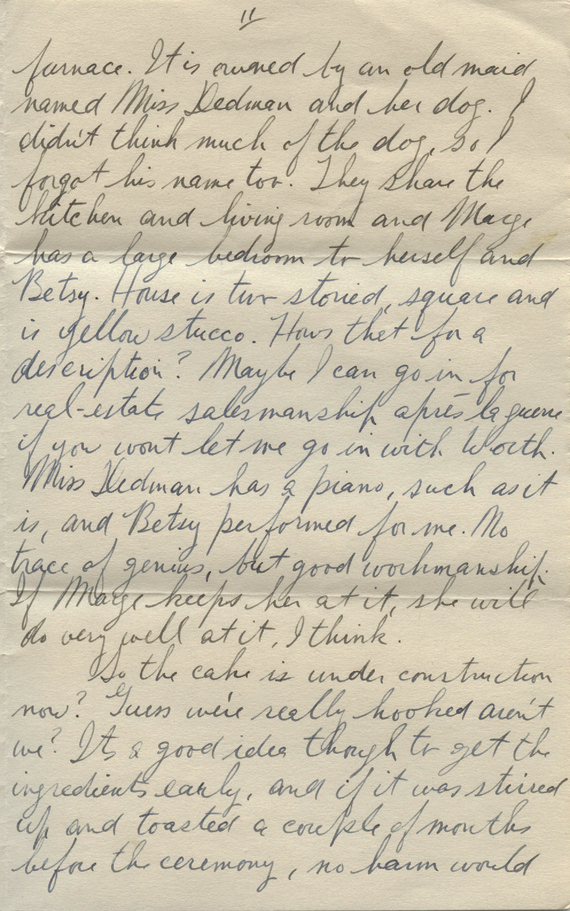 11
furnace. It is owned by an old maid
named Miss Dedman and her dog. I
didn't think much of the dog, so I
forgot his name too. They share the
kitchen and living room and Marge
has a large bedroom to herself and
Betsy. House is two storied, square and
is yellow stucco. Hows that for a
description? Maybe I can go in for
real-estate salesmanship après la guerre
if you wont let me go in with Worth.
Miss Dedman has a piano, such as it
is, and Betsy performed for me. No
trace of genius, but good workmanship.
If Marge keeps her at it, she will
do very well at it, I think.
So the cake is under construction
now? Guess we're really hooked aren't
we? Its a good idea though to get the
ingredients early, and if it was stirred
up and toasted a couple of months
before the ceremony, no harm would